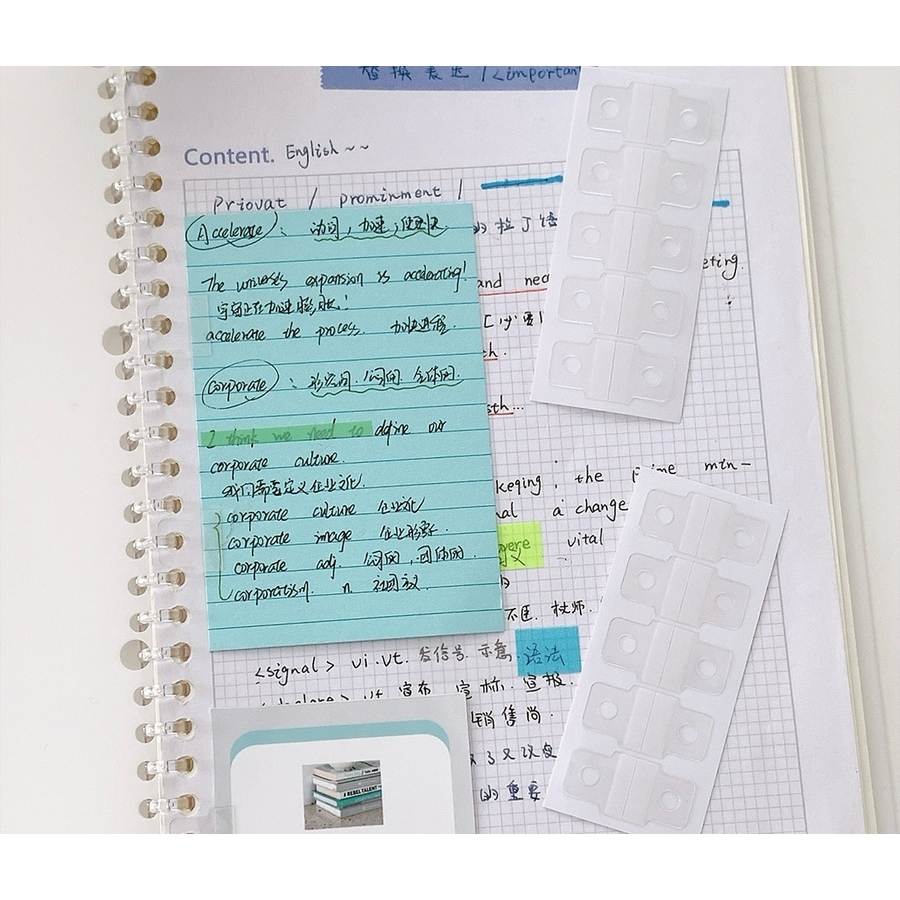 替换表达 / <importan
Content. English ~ ~
Priovat / prominment /
Accelerate : 动词, 加速, 使加快
的拉丁语
The universes expansion is accelerating!
and nec
eting.
宇宙正在加速膨胀!
accelerate the process. 加快进程.
汇必要
th.
corporate : 形容词. 公司的. 全体的.
sth...
I think we need to define our
corporate culture.
我们需要定义企业文化.
keqing, the prime min-
nal a change
corporate culture 企业文化
corporate image 企业形象.
vere vital
义
corporate adj. 公司的, 团体的.
corporatism. n. 社团主义
不匡. 杖师.
<signal> vi.vt. 发信号. 示意. 语法
vt 宣布. 宣标. 宣报.
销售尚.
了又改变
# REBEL TALENT
的重要